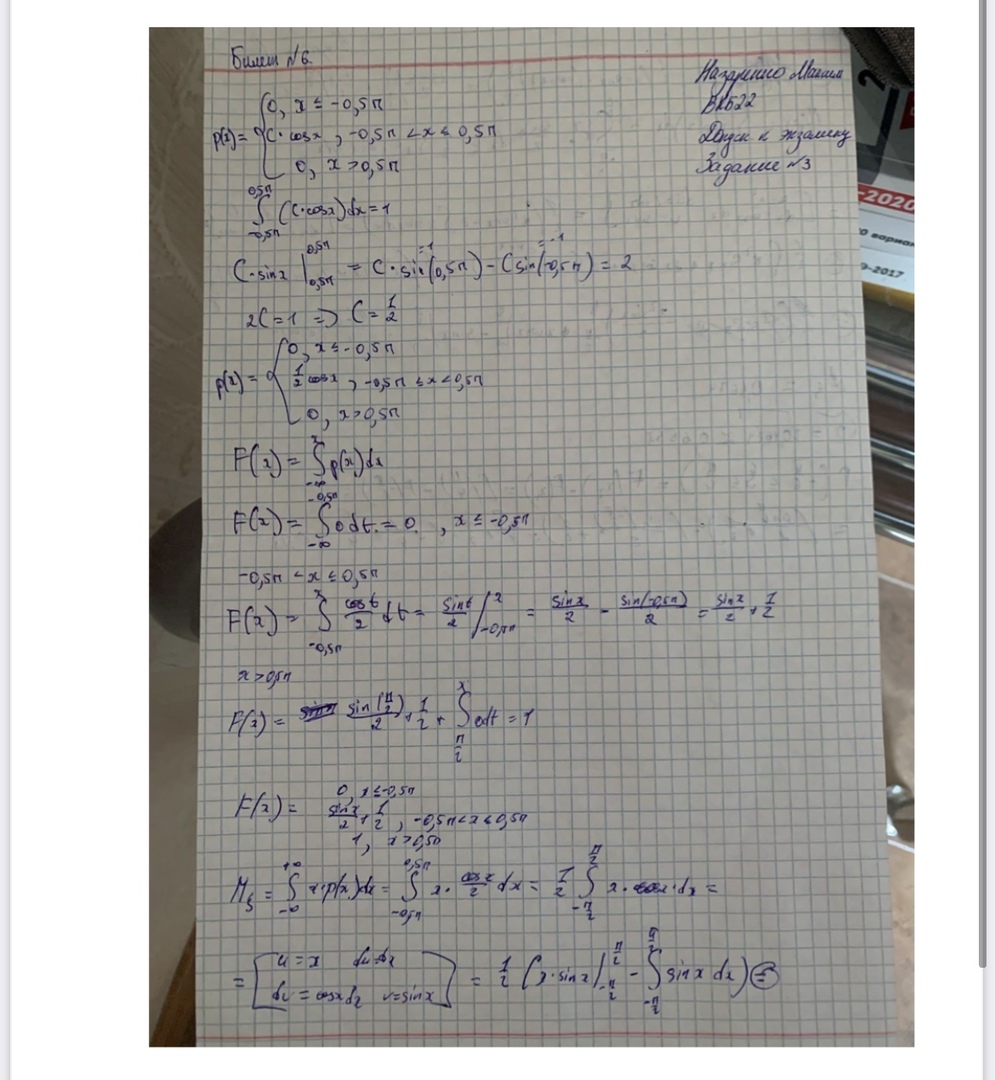 Билет №6
Назаренко Максим
ВКБ22
Допуск к экзамену
Задание №3
p(x) = { 0, x ≤ -0,5π
C·cosx, -0,5π < x ≤ 0,5π
0, x > 0,5π
∫_{-0,5π}^{0,5π} (C·cosx)dx = 1
C·sinx |_{0,5π}^{0,5π} = C·sin(0,5π) - Csin(-0,5π) = 2
=1 =-1
2C = 1 => C = 1/2
p(x) = { 0, x ≤ -0,5π
1/2 cosx, -0,5π ≤ x < 0,5π
0, x > 0,5π
F(x) = ∫_{-∞}^{x} p(x)dx
F(x) = ∫_{-∞}^{-0,5π} 0 dt = 0, x ≤ -0,5π
-0,5π < x ≤ 0,5π
F(x) = ∫_{-0,5π}^{x} cost/2 dt = sint/2 |_{-0,5π}^{x} = sinx/2 - sin(-0,5π)/2 = sinx/2 + 1/2
x > 0,5π
F(x) = sin(π/2)/2 + 1/2 + ∫_{π/2}^{x} 0dt = 1
F(x) = 0, x ≤ -0,5π
sinx/2 + 1/2, -0,5π < x ≤ 0,5π
1, x > 0,5π
M_ξ = ∫_{-∞}^{+∞} x·p(x)dx = ∫_{-0,5π}^{0,5π} x· cosx/2 dx = 1/2 ∫_{-π/2}^{π/2} x·cosx·dx =
= [ u = x du=dx
dv = cosxdx v=sinx ] = 1/2 (x·sinx |_{-π/2}^{π/2} - ∫_{-π/2}^{π/2} sinx dx) =
-2020
-2017